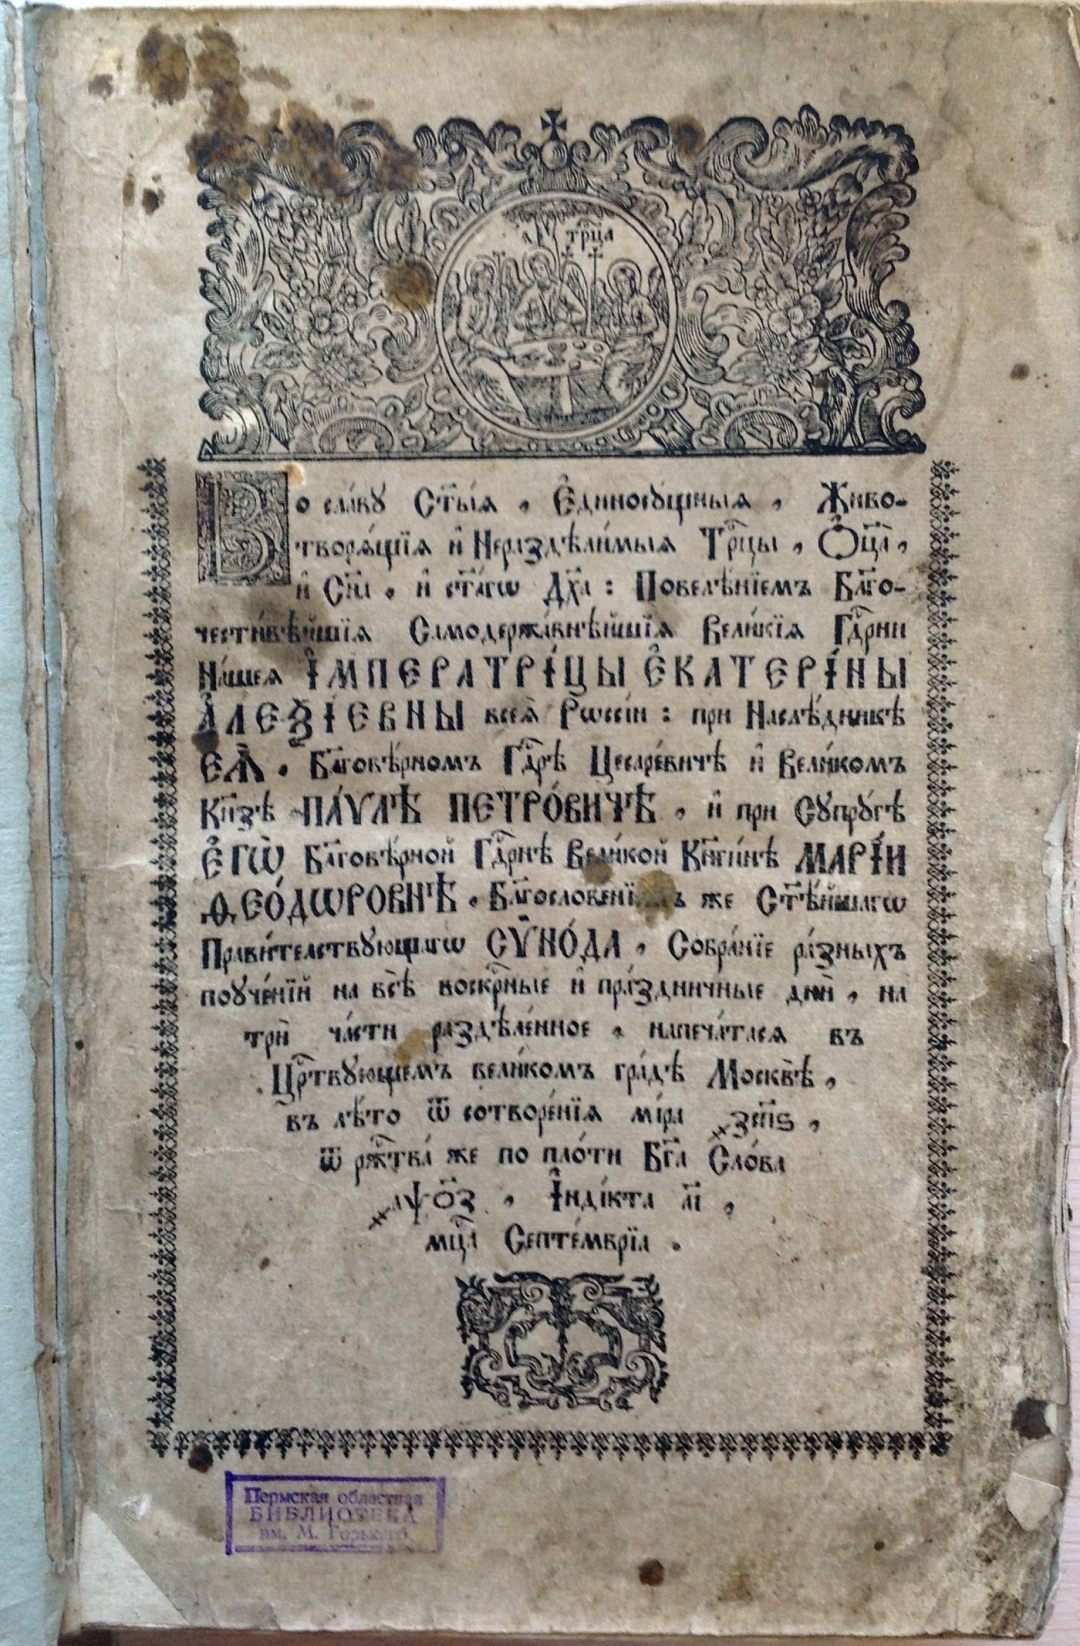 трⷪ҇ца
Во сла́вꙋ Ст҃ы́ѧ , Є҆диносꙋ́щныѧ , Живо-
творѧ́щїѧ и҆ Нераздѣли́мыѧ Трⷪ҇цы , Ѻ҆ц҃а̀ ,
и҆ Сн҃а , и҆ ст҃а́гѡ Дх҃а : Повелѣ́нїемъ Бл҃го-
чести́вѣйшїѧ Самодержа́внѣйшїѧ Вели́кїѧ Гдⷭ҇рни
На́шеѧ І҆МПЕРАТРІ́ЦЫ Є҆КАТЕРІ́НЫ
А҆ЛЕѮІ́ЕВНЫ всеѧ̀ Рѡссі́и : при Наслѣ́дникѣ
ЕѦ̀ , Бл҃говѣ́рномъ Гдⷭ҇рѣ Цесаре́вичѣ и҆ Вели́комъ
Кн҃зѣ ПА́ѴЛѢ ПЕТРО́ВИЧѢ , и҆ при Сꙋпрꙋ́гѣ
Є҆ГѠ̀ Бл҃говѣ́рной Гдⷭ҇рнѣ Вели́кой Кн҃ги́нѣ МАРІ́И
ѲЕО́ДѠРОВНѢ , Бл҃гослове́нїемъ же Ст҃ѣ́йшагѡ
Прави́телствꙋющагѡ СѴНО́ДА , Собра́нїе ра́зныхъ
поꙋче́нїй на всѣ̀ воскрⷭ҇ные и҆ пра́здничные дни̑ , на
трѝ ча́сти раздѣле́нное , напеча́тасѧ въ
Црⷭ҇твꙋющемъ вели́комъ гра́дѣ Москвѣ̀ ,
въ лѣ́то ѿ сотворе́нїѧ мі́ра ҂зс҃пѕ ,
ѿ рж҇тва́ же по пло́ти Бг҃а Сло́ва
҂аѱо҃з , І҆нді́кта а҃і ,
мц҇а Септе́мврїа .
Пермская областная
БИБЛИОТЕКА
им. М. Горького